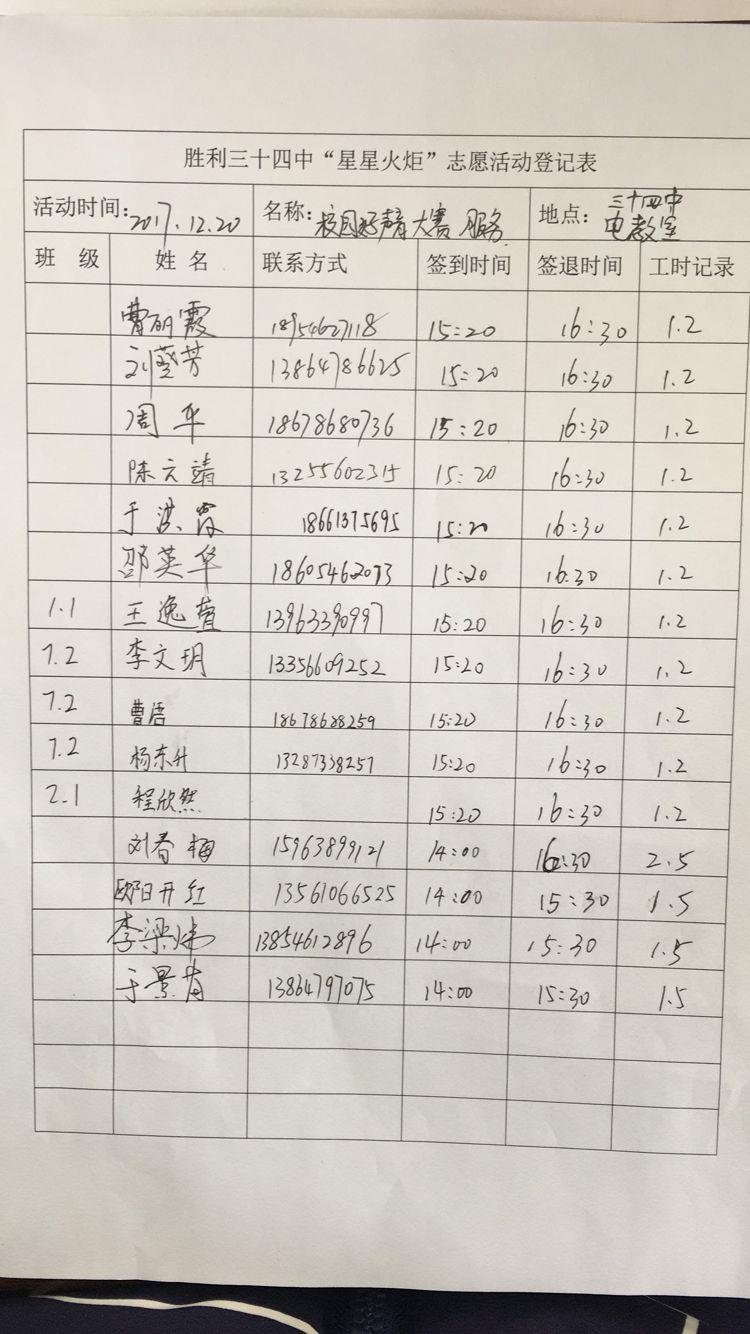 胜利三十四中“星星火炬”志愿活动登记表
活动时间: 2017.12.20 名称: 校园好声音大赛 服务 地点: 三十四中 电教室
班 级 姓 名 联系方式 签到时间 签退时间 工时记录
曹丽霞 18954627118 15:20 16:30 1.2
刘芳 13864786625 15:20 16:30 1.2
周华 18678680736 15:20 16:30 1.2
陈立靖 13255602315 15:20 16:30 1.2
于洪霞 18661375695 15:20 16:30 1.2
邵英华 18605462073 15:20 16:30 1.2
1.1 王逸萱 13963390997 15:20 16:30 1.2
7.2 李文玥 13356609252 15:20 16:30 1.2
7.2 曹语 18678688259 15:20 16:30 1.2
7.2 杨东升 13287338257 15:20 16:30 1.2
2.1 程欣然 15:20 16:30 1.2
刘春梅 15963899121 14:00 16:30 2.5
欧阳开红 13561066525 14:00 15:30 1.5
李梁 13854612896 14:00 15:30 1.5
于景 13864797075 14:00 15:30 1.5